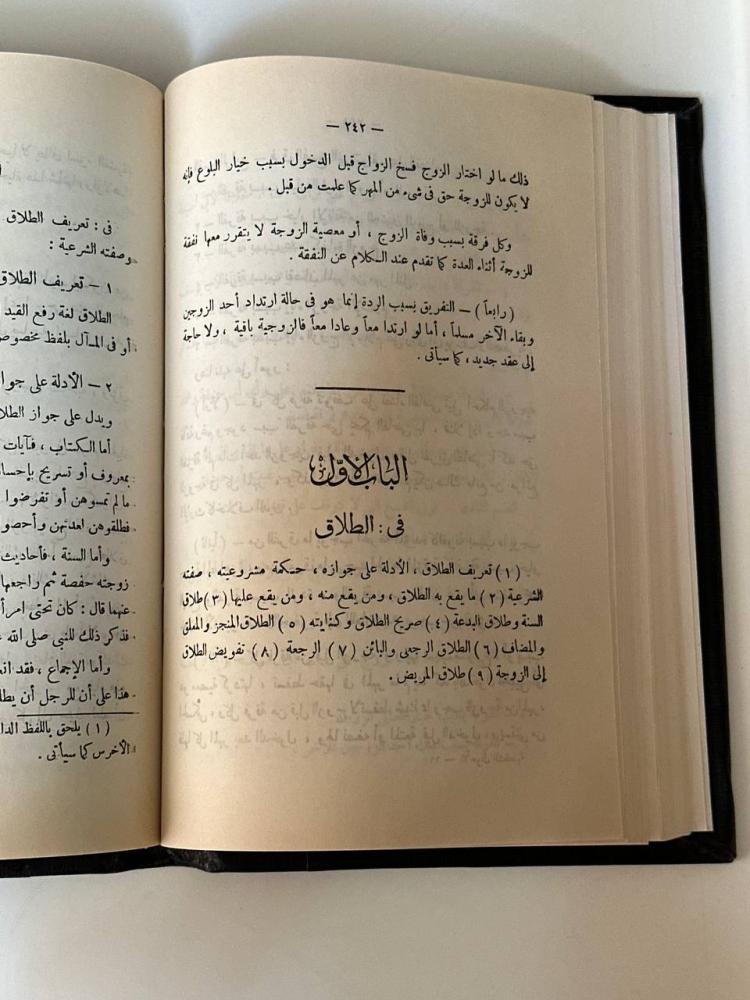 — ٢٤٢ —
ذلك ما لو اختار الزوج فسخ الزواج قبل الدخول بسبب خيار البلوغ فإنه
لا يكون للزوجة حق فى شىء من المهر كما علمت من قبل .
وكل فرقة بسبب وفاة الزوج ، أو معصية الزوجة لا يتقرر معها نفقة
للزوجة أثناء العدة كما تقدم عند الكلام عن النفقة .
( رابعاً ) — التفريق بسبب الردة إنما هو فى حالة ارتداد أحد الزوجين
وبقاء الآخر مسلماً ، أما لو ارتدا معاً وعادا معاً فالزوجية باقية ، ولا حاجة
إلى عقد جديد ، كما سيأتى .
الباب الأول
فى : الطلاق
( ١ ) تعريف الطلاق ، الأدلة على جوازه ، حكمة مشروعيته ، صفته
الشرعية ( ٢ ) ما يقع به الطلاق ، ومن يقع منه ، ومن يقع عليها ( ٣ ) طلاق
السنة وطلاق البدعة ( ٤ ) صريح الطلاق وكنايته ( ٥ ) الطلاق المنجز والمعلق
والمضاف ( ٦ ) الطلاق الرجعى والبائن ( ٧ ) الرجعة ( ٨ ) تفويض الطلاق
إلى الزوجة ( ٩ ) طلاق المريض .
فى : تعريف الطلاق
وصفته الشرعية :
١ — تعريف الطلاق
الطلاق لغة رفع القيد
أو فى المآل بلفظ مخصوص
٢ — الأدلة على جواز
ويدل على جواز الطلا
أما الكتاب ، فآيات
بمعروف أو تسريح بإحسا
ما لم تمسوهن أو تفرضوا
فطلقوهن لعدتهن وأحصو
وأما السنة ، فأحاديث
زوجته حفصة ثم راجعها
عنهما قال : كان تحتى امرأ
فذكر ذلك للنبى صلى الله
وأما الإجماع ، فقد
هذا على أن للرجل أن يطل
( ١ ) يلحق باللفظ الدا
الأخرس كما سيأتى .